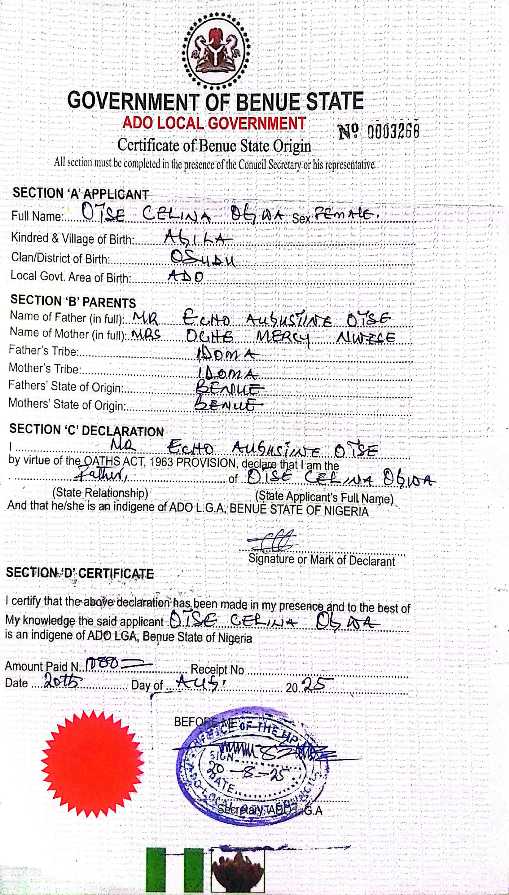 GOVERNMENT OF BENUE STATE
ADO LOCAL GOVERNMENT
Certificate of Benue State Origin
Nº 0003268
All section must be completed in the presence of the Conucil Secretary or his representative
SECTION 'A' APPLICANT
Full Name: OTSE CELINA OGWA Sex FEMALE.
Kindred & Village of Birth: AGILA
Clan/District of Birth: OSUDU
Local Govt. Area of Birth: ADO
SECTION 'B' PARENTS
Name of Father (in full): MR ECHO AUGUSTINE OTSE
Name of Mother (in full): MRS OGHE MERCY
Father's Tribe: IDOMA
Mother's Tribe: IDOMA
Fathers' State of Origin: BENUE
Mothers' State of Origin: BENUE
SECTION 'C' DECLARATION
I MR ECHO AUGUSTINE OTSE
by virtue of the OATHS ACT, 1963 PROVISION, declare that I am the
father, of OTSE CELINA OGWA
(State Relationship) (State Applicant's Full Name)
And that he/she is an indigene of ADO L.G.A, BENUE STATE OF NIGERIA
Signature or Mark of Declarant
SECTION 'D' CERTIFICATE
I certify that the above declaration has been made in my presence and to the best of
My knowledge the said applicant OTSE CELINA OGWA
is an indigene of ADO LGA, Benue State of Nigeria
Amount Paid N. Receipt No
Date 20th Day of AUG. 20 25
BEFORE ME
OFFICE OF THE
SIGN
20-8-25
DATE
Secretary ADO L.G.A